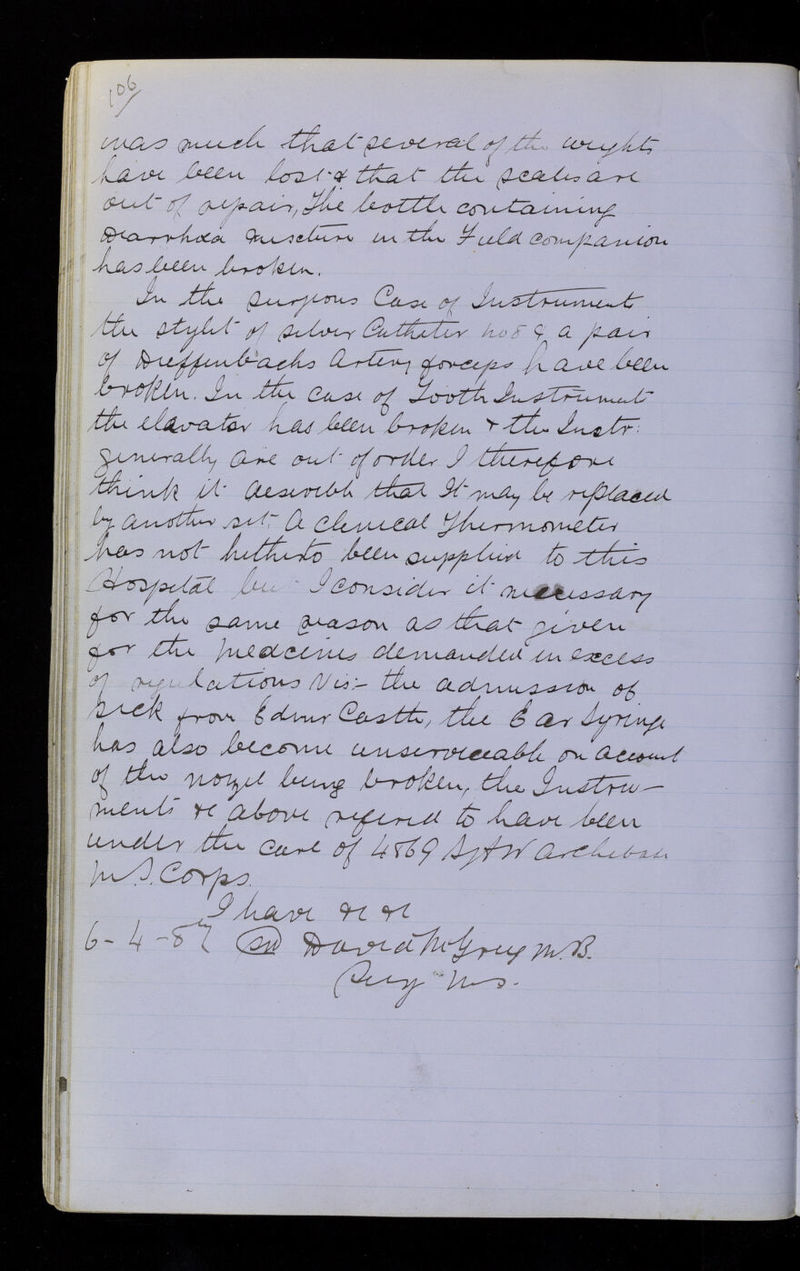 106
inas much that several of the weights
have been lost & that the scales are
out of repair, The bottle containing
Diarrhoea mixture in the Field companion
has been broken.
In the surgions Case of Instruments
the stylet of silver Catheter No 8 & a pair
of Dieffenbachs Artery forceps have been
broken. In the case of Tooth Instruments
the elavator has been broken & the Instr:
generally are out of order I therefore
think it desirible that It may be replaced
by another set. A clenical Thermometer
has not hitherto been supplied to this
Hospital but I consider it necessary
for the same reason as that given
for the Medcines demanded in excess
of regulations Vis:- the admission of
sick from Edinr Castle, the Ear Syringe
has also become unserviceable on account
of the nozel being broken, the Instru-
ments &c above refered to have been
under the care of 4869
M.S. Corps.
I have &c &c
6-4-87 Sd David M. B.
Surg M S.